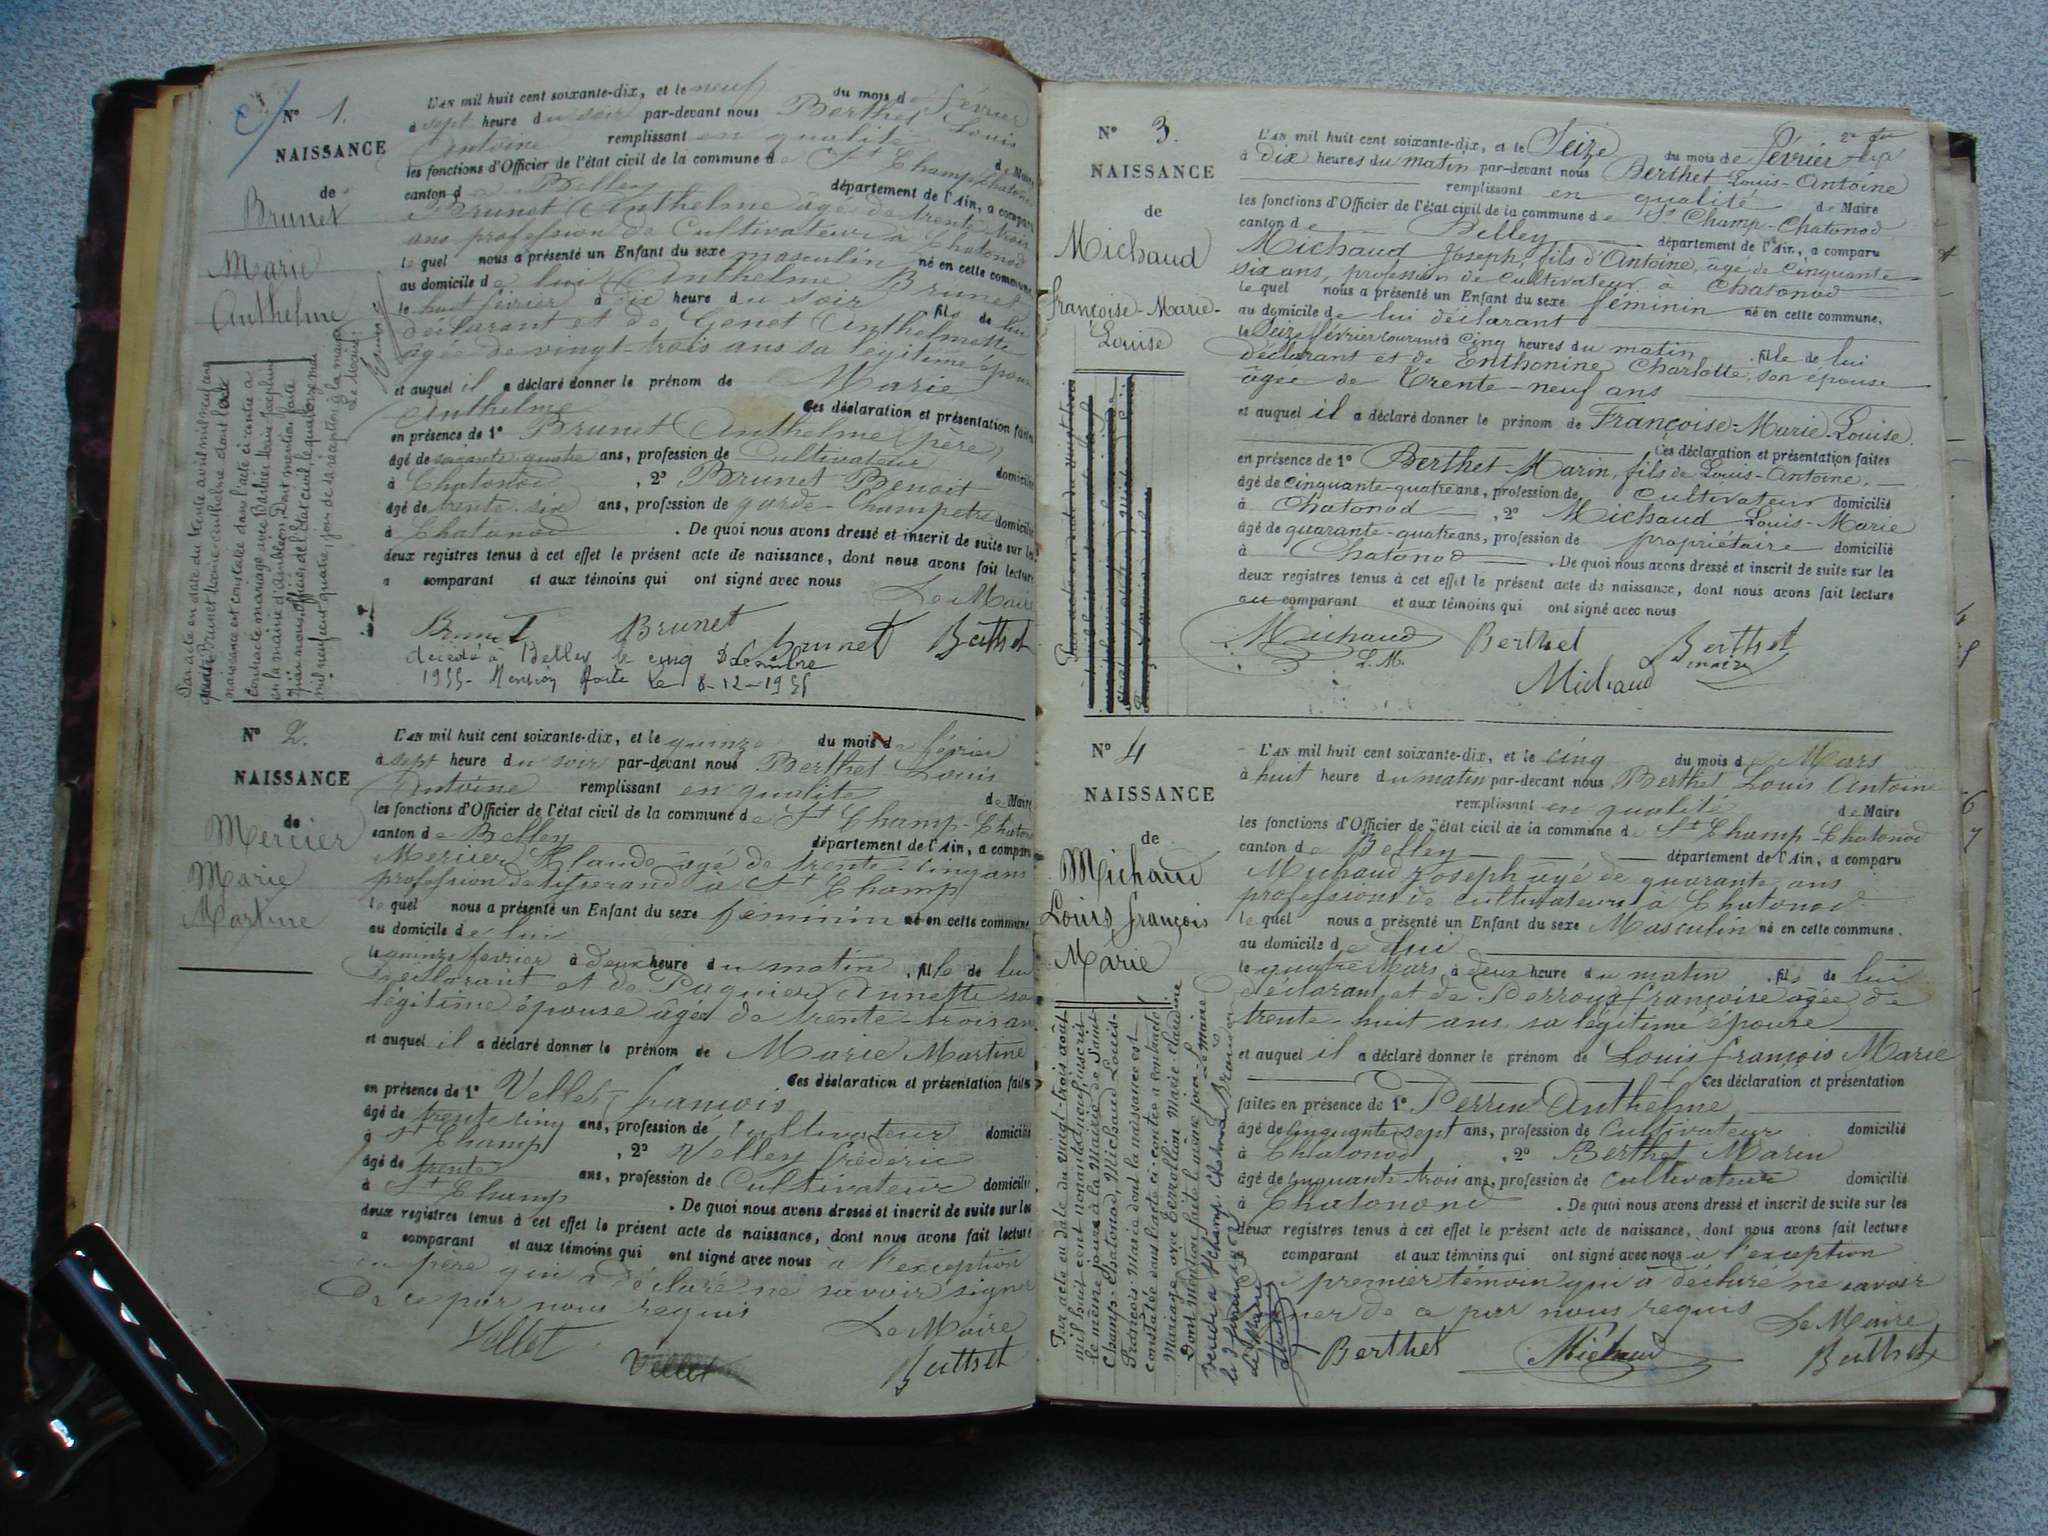 Nº 1.
NAISSANCE
de
Brunet
Marie
Anthelme
L'AN mil huit cent soixante-dix, et le neuf du mois de février
à sept heure du soir par-devant nous Berthet Louis
Antoine remplissant en qualité de Maire
les fonctions d'Officier de l'état civil de la commune de St Champ Chatonod
canton de Belley département de l'Ain, a comparu
Brunet Anthelme âgé de trente trois
ans profession de Cultivateur à Chatonod
le quel nous a présenté un Enfant du sexe masculin né en cette commune
au domicile de lui Anthelme Brunet
le huit février à dix heure du soir fils de lui
déclarant et de Genet Anthelmette
âgée de vingt-trois ans sa légitime épouse
et auquel il a déclaré donner le prénom de Marie
Anthelme Ces déclaration et présentation faites
en présence de 1º Brunet Anthelme (père)
âgé de soixante quatre ans, profession de Cultivateur domicilié
à Chatonod , 2º Brunet Benoit
âgé de trente-six ans, profession de garde-Champetre domicilié
à Chatonod . De quoi nous avons dressé et inscrit de suite sur les
deux registres tenus à cet effet le présent acte de naissance, dont nous avons fait lecture
a comparant et aux témoins qui ont signé avec nous
Le Maire
Brunet Brunet Brunet Berthet
décédé à Belley le cinq Décembre
1955- Mention faite le 8-12-1955
Par acte en date du trente avril mil neuf cent
quatre Brunet Marie-Anthelme dont l'acte de
naissance est constaté dans l'acte ci-contre a
contracté mariage avec
en la mairie d'Ambléon. Dont mention faite
par nous officier de l'état civil, le quatorze mai
mil neuf cent quatre, jour de sa réception à la mairie
Le Maire:
Nº 2.
NAISSANCE
de
Mercier
Marie
Martine
L'AN mil huit cent soixante-dix, et le quinze du mois de février
à sept heure du soir par-devant nous Berthet Louis
Antoine remplissant en qualité de Maire
les fonctions d'Officier de l'état civil de la commune de St Champ-Chatonod
canton de Belley département de l'Ain, a comparu
Mercier Claude âgé de trente-cinq ans
profession de tisserand à St Champ
le quel nous a présenté un Enfant du sexe féminin né en cette commune
au domicile de lui
le quinze février à deux heure du matin , fille de lui
déclarant et de Pugnier Annette sa
légitime épouse âgée de trente-trois ans
et auquel il a déclaré donner le prénom de Marie Martine
Ces déclaration et présentation faites
en présence de 1º Vellet françois
âgé de trente cinq ans, profession de cultivateur domicilié
à St Champ , 2º Vellet fréderic
âgé de trente ans, profession de Cultivateur domicilié
à St Champ . De quoi nous avons dressé et inscrit de suite sur les
deux registres tenus à cet effet le présent acte de naissance, dont nous avons fait lecture
a comparant et aux témoins qui ont signé avec nous à l'exception
du père qui a déclaré ne savoir signer
de ce par nous requis
Le Maire
Vellet Vellet Berthet
Nº 3.
NAISSANCE
de
Michaud
Françoise-Marie-
Louise
L'AN mil huit cent soixante-dix, et le Seize du mois de février
à dix heures du matin par-devant nous Berthet Louis-Antoine
remplissant en qualité de Maire
les fonctions d'Officier de l'état civil de la commune de St Champ-Chatonod
canton de Belley département de l'Ain, a comparu
Michaud Joseph, fils d'Antoine, âgé de cinquante-
six ans, profession de cultivateur à Chatonod
le quel nous a présenté un Enfant du sexe féminin né en cette commune.
au domicile de lui déclarant
le Seize février courant à cinq heures du matin , fille de lui
déclarant et de Enthonine Charlotte, son épouse
âgée de trente-neuf ans
et auquel il a déclaré donner le prénom de Françoise-Marie-Louise.
Ces déclaration et présentation faites
en présence de 1º Berthet Marin, fils de Louis-Antoine,
âgé de cinquante-quatre ans, profession de cultivateur domicilié
à Chatonod , 2º Michaud Louis-Marie
âgé de quarante-quatre ans, profession de propriétaire domicilié
à Chatonod . De quoi nous avons dressé et inscrit de suite sur les
deux registres tenus à cet effet le présent acte de naissance, dont nous avons fait lecture
au comparant et aux témoins qui ont signé avec nous
Michaud Berthet Berthet
L.M. maire
Michaud
Nº 4
NAISSANCE
de
Michaud
Louis françois
Marie
L'AN mil huit cent soixante-dix, et le cinq du mois de Mars
à huit heure du matin par-devant nous Berthet Louis Antoine
remplissant en qualité de Maire
les fonctions d'Officier de l'état civil de la commune de St Champ-Chatonod
canton de Belley département de l'Ain, a comparu
Michaud Joseph âgé de quarante ans
profession de cultivateur à Chatonod
le quel nous a présenté un Enfant du sexe Masculin né en cette commune.
au domicile de lui
le quatre Mars à deux heure du matin , fils de lui
déclarant et de Perroux françoise âgée de
trente-huit ans sa légitime épouse
et auquel il a déclaré donner le prénom de Louis françois Marie
Ces déclaration et présentation
faites en présence de 1º Perrin Anthelme
âgé de cinquante sept ans, profession de Cultivateur domicilié
à Chatonod , 2º Berthet Marin
âgé de cinquante-trois ans, profession de cultivateur domicilié
à Chatonod . De quoi nous avons dressé et inscrit de suite sur les
deux registres tenus à cet effet le présent acte de naissance, dont nous avons fait lecture
comparant et aux témoins qui ont signé avec nous à l'exception
premier témoin qui a déclaré ne savoir
signer de ce par nous requis
Le Maire
Berthet Michaud Berthet
Par acte en date du vingt-trois août
mil huit cent nonante-neuf, inscrit
le même jour à la Mairie de Saint
Champ-Chatonod, Michaud Louis-
François-Marie dont la naissance est
constatée dans l'acte ci-contre a contracté
Mariage avec Marie-Claudine
Dont mention faite le même jour
Le Maire
décédé à St Champ Chatonod